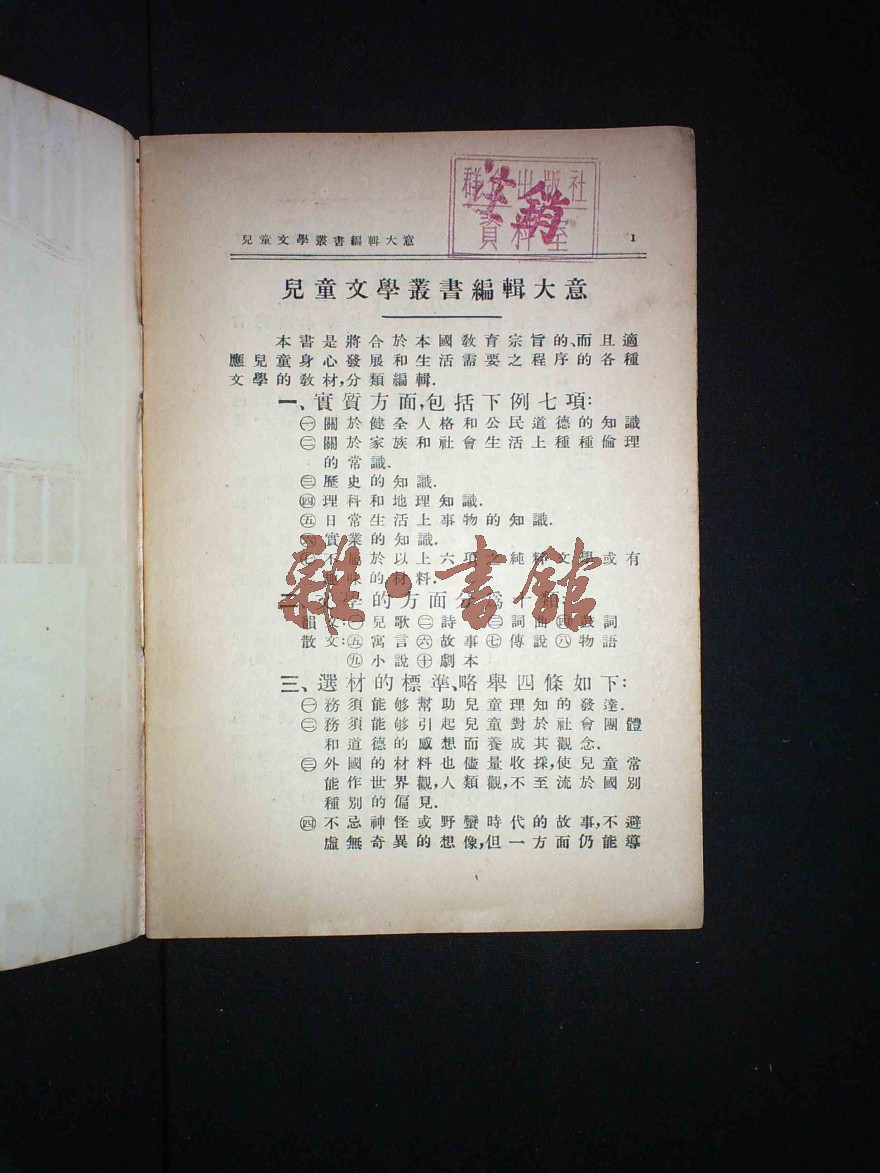 群众出版社
資料室
注銷
兒童文學叢書編輯大意 1
兒童文學叢書編輯大意
本書是將合於本國教育宗旨的、而且適
應兒童身心發展和生活需要之程序的各種
文學的教材,分類編輯.
一、實質方面,包括下例七項:
㊀關於健全人格和公民道德的知識
㊁關於家族和社會生活上種種倫理
的常識.
㊂歷史的知識.
㊃理科和地理知識.
㊄日常生活上事物的知識.
㊅實業的知識.
㊆不屬於以上六項之純粹文學或有
趣味的材料.
二、文學的方面分爲十類:
韻文:㊀兒歌㊁詩㊂詞曲㊃鼓詞
散文:㊄寓言㊅故事㊆傳說㊇物語
㊈小說㊉劇本
三、選材的標準、略舉四條如下:
㊀務須能够幫助兒童理知的發達.
㊁務須能够引起兒童對於社會團體
和道德的感想而養成其觀念.
㊂外國的材料也儘量收採,使兒童常
能作世界觀,人類觀,不至流於國別
種別的偏見.
㊃不忌神怪或野蠻時代的故事,不避
虛無奇異的想像,但一方面仍能導
雜·書館